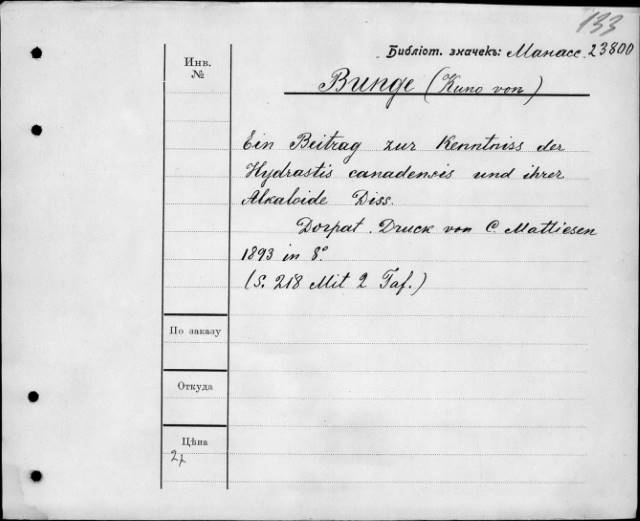 133
Библіот. значекъ: Манасс. 23800
Инв.
№
Bunge (Kuno von)
Ein Beitrag zur Kenntniss der
Hydrastis canadensis und ihrer
Alkaloide Diss.
Dorpat. Druck von C. Mattiesen
1893 in 8º
(S. 218 Mit 2 Taf.)
По заказу
Откуда
Цѣна